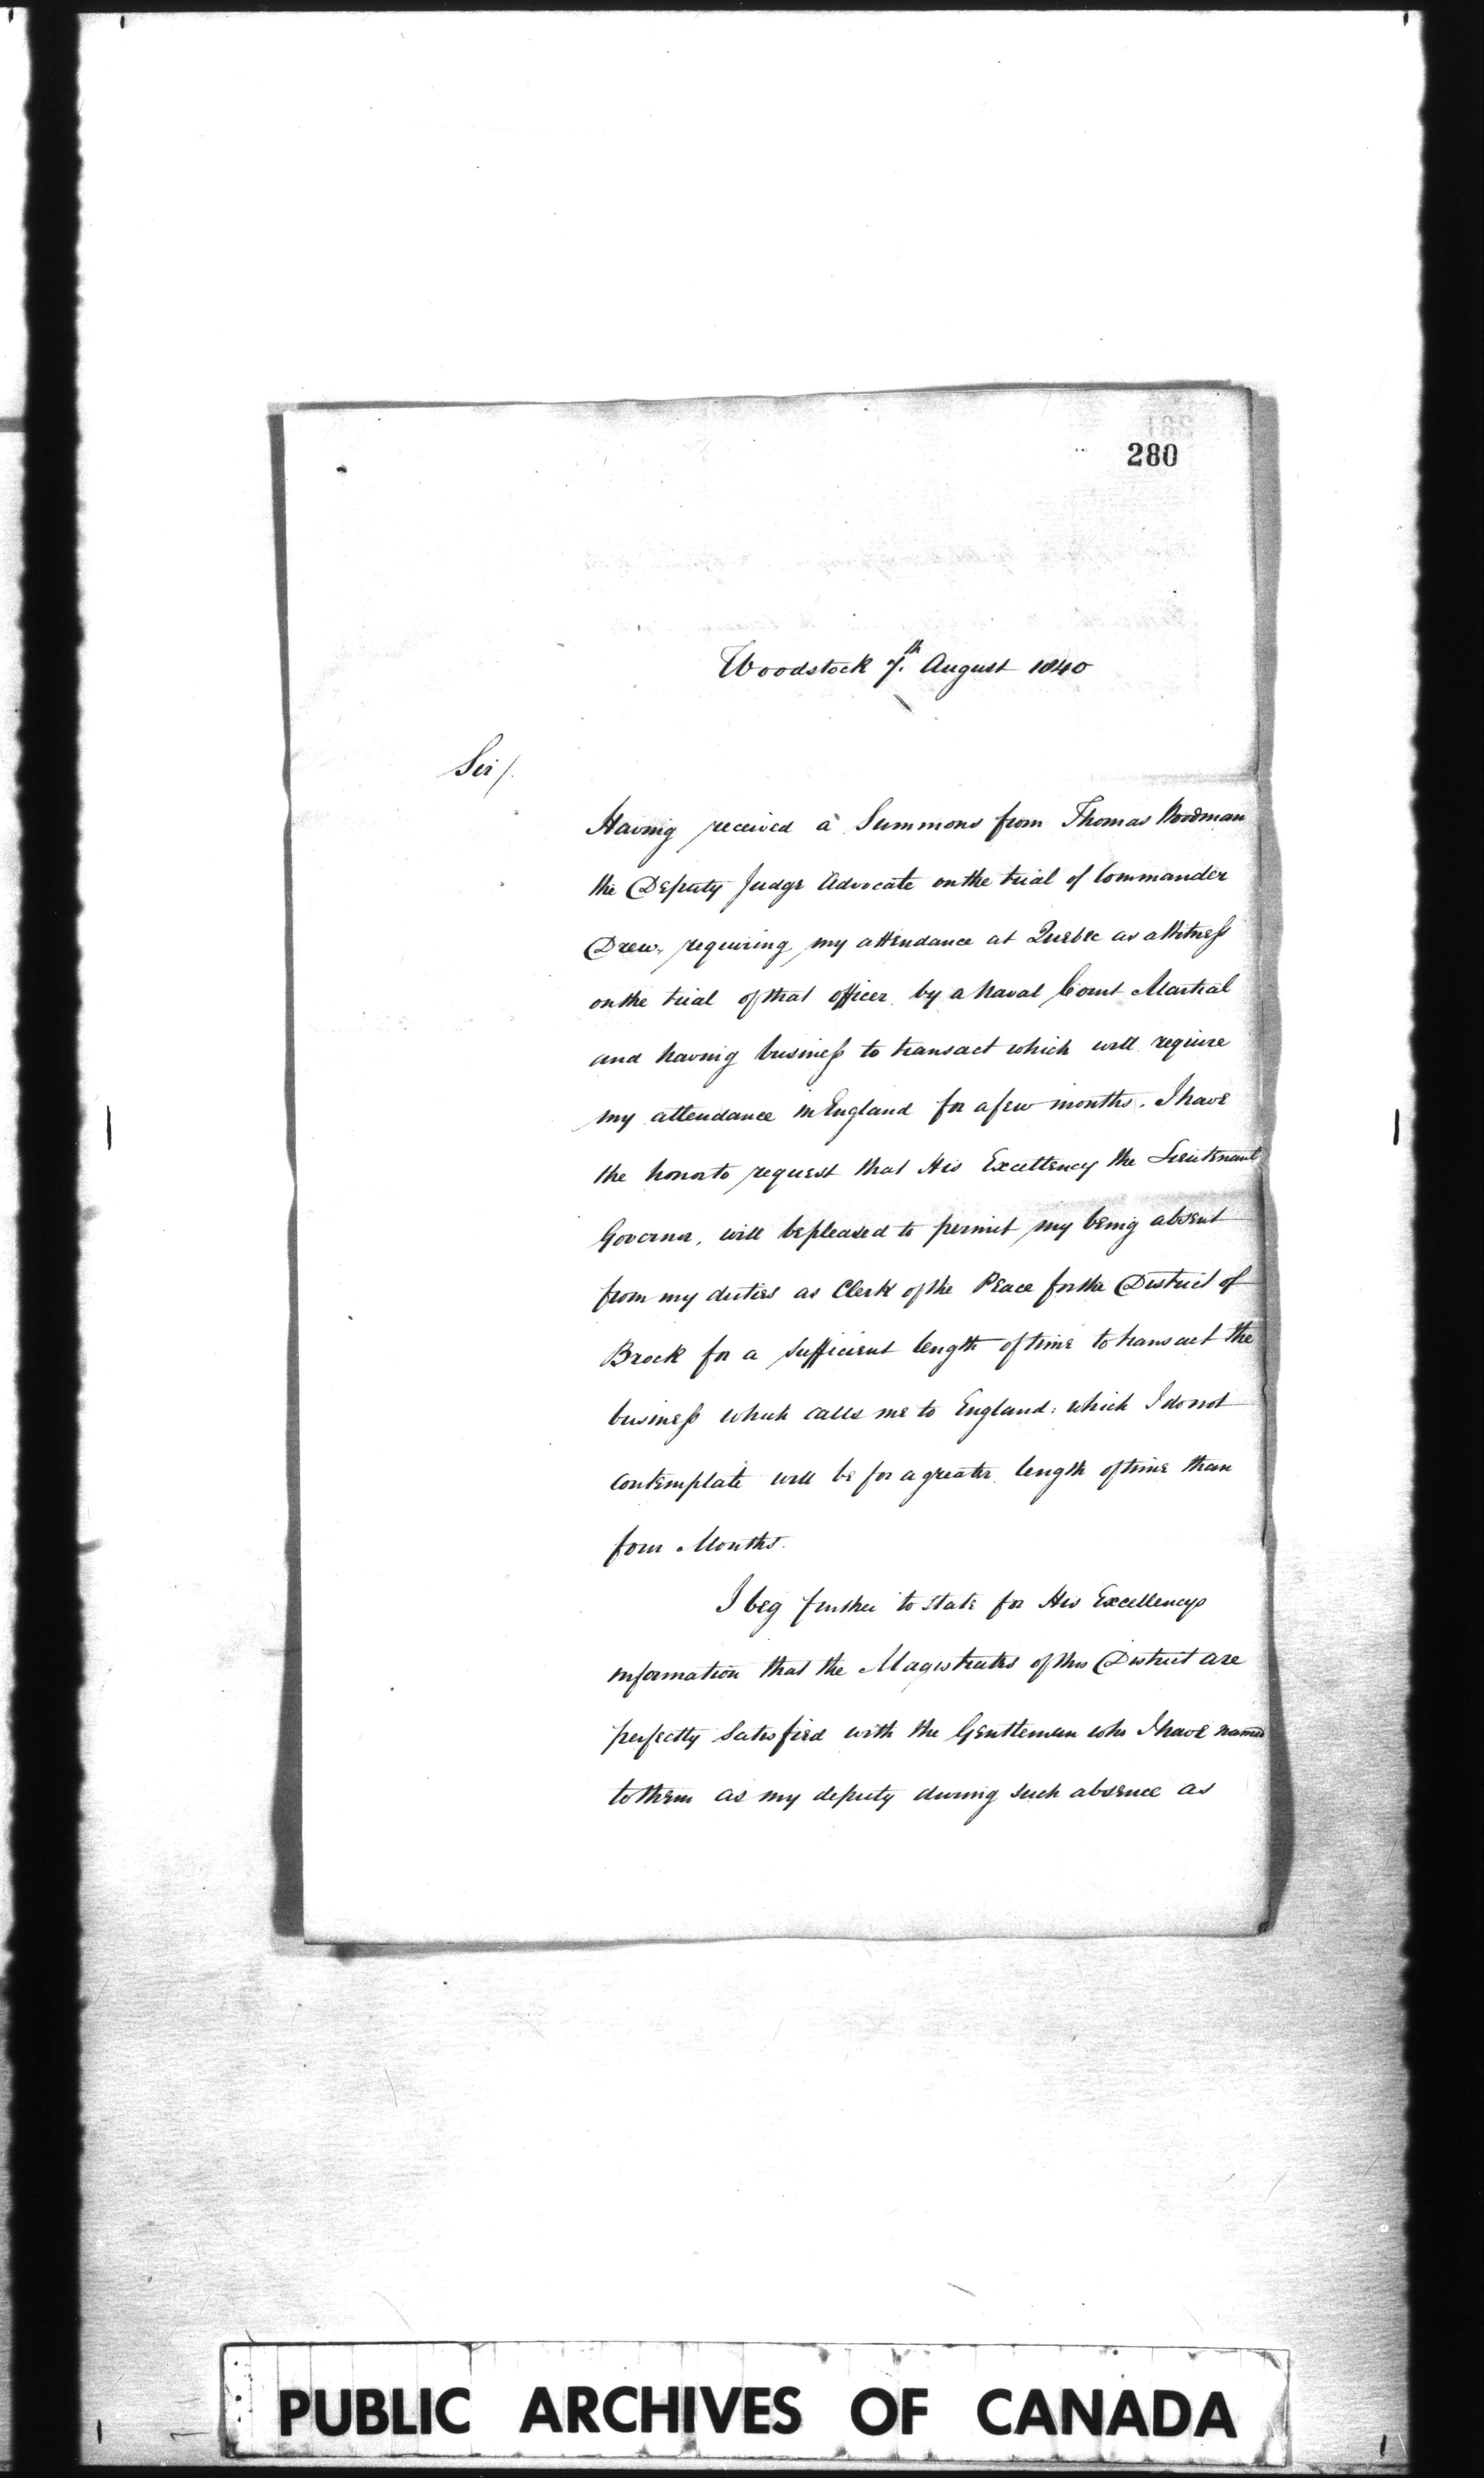 280
Woodstock 7th. August 1840
Sir/.
Having received a Summons from Thomas
the Deputy Judge Advocate on the trial of Commander
Drew, requiring my attendance at Quebec as a Witness
on the trial of that officer by a Naval Court Martial
and having business to transact which will require
my attendance in England for a few months. I have
the honor to request that His Excellency the Lieutenant
Governor, will be pleased to permit my being absent
from my duties as Clerk of the Peace for the District of
Brock for a sufficient length of time to transact the
business which calls me to England: which I do not
contemplate will be for a greater length of time than
four Months.
I beg further to state for His Excellencys
information that the Magistrates of this District are
perfectly satisfied with the Gentleman who I have named
to them as my deputy during such absence as
PUBLIC ARCHIVES OF CANADA